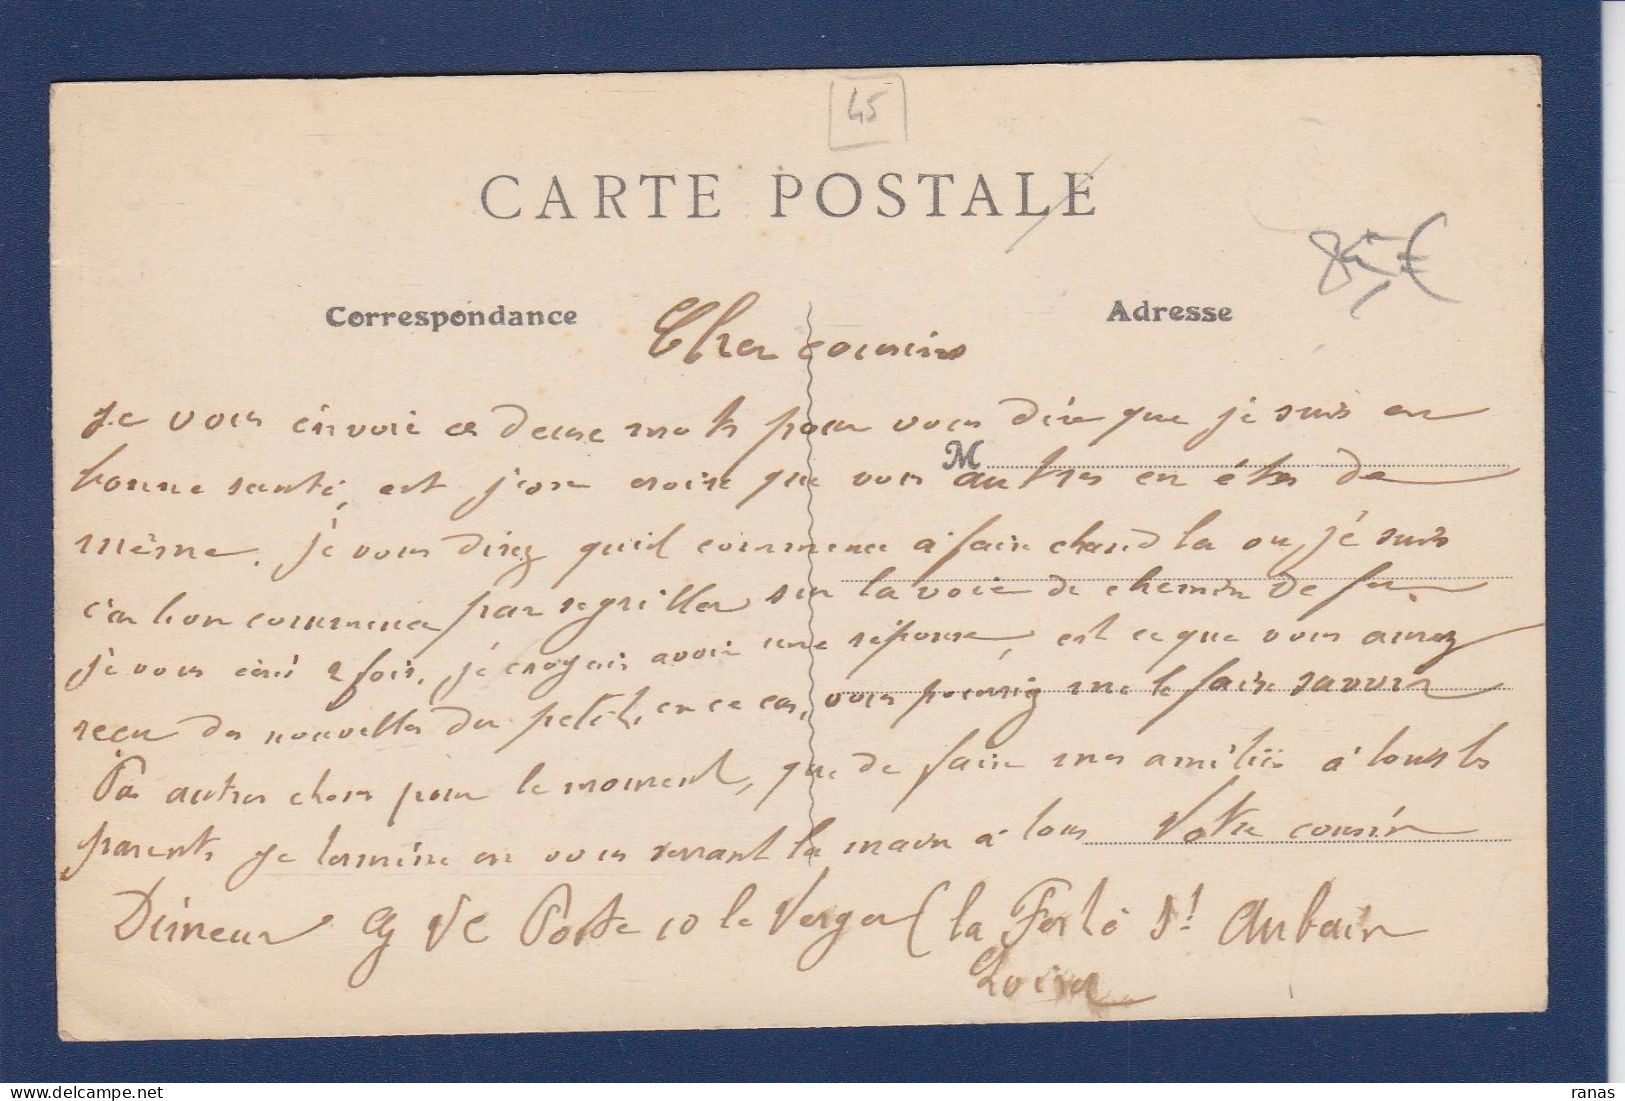 45
CARTE POSTALE
85,€
Correspondance
Adresse
Cher cousins
Je vous envoie ce deux mots pour vous dire que je suis en
M
bonne santé, est j'ose croire que vous autres en êtes de
même. Je vous direz quil commence a faire chaud la ou, jé suis
c'a bon commence par se griller sur la voie de chemin de fer.
jé vous écrit 2 fois, jé croyais avoir une réponse, est ce que vous aurez
reçu des nouvelles du petit, en ce cas, vous me le faire savoir
Pas autres choses pour le moment, que de faire mes amitiés à tous les
parents je termine en vous serrant la main à tous Votre cousin
G V C Poste 10 le Verger (la Ferté St Aubain
Loiret
ranas